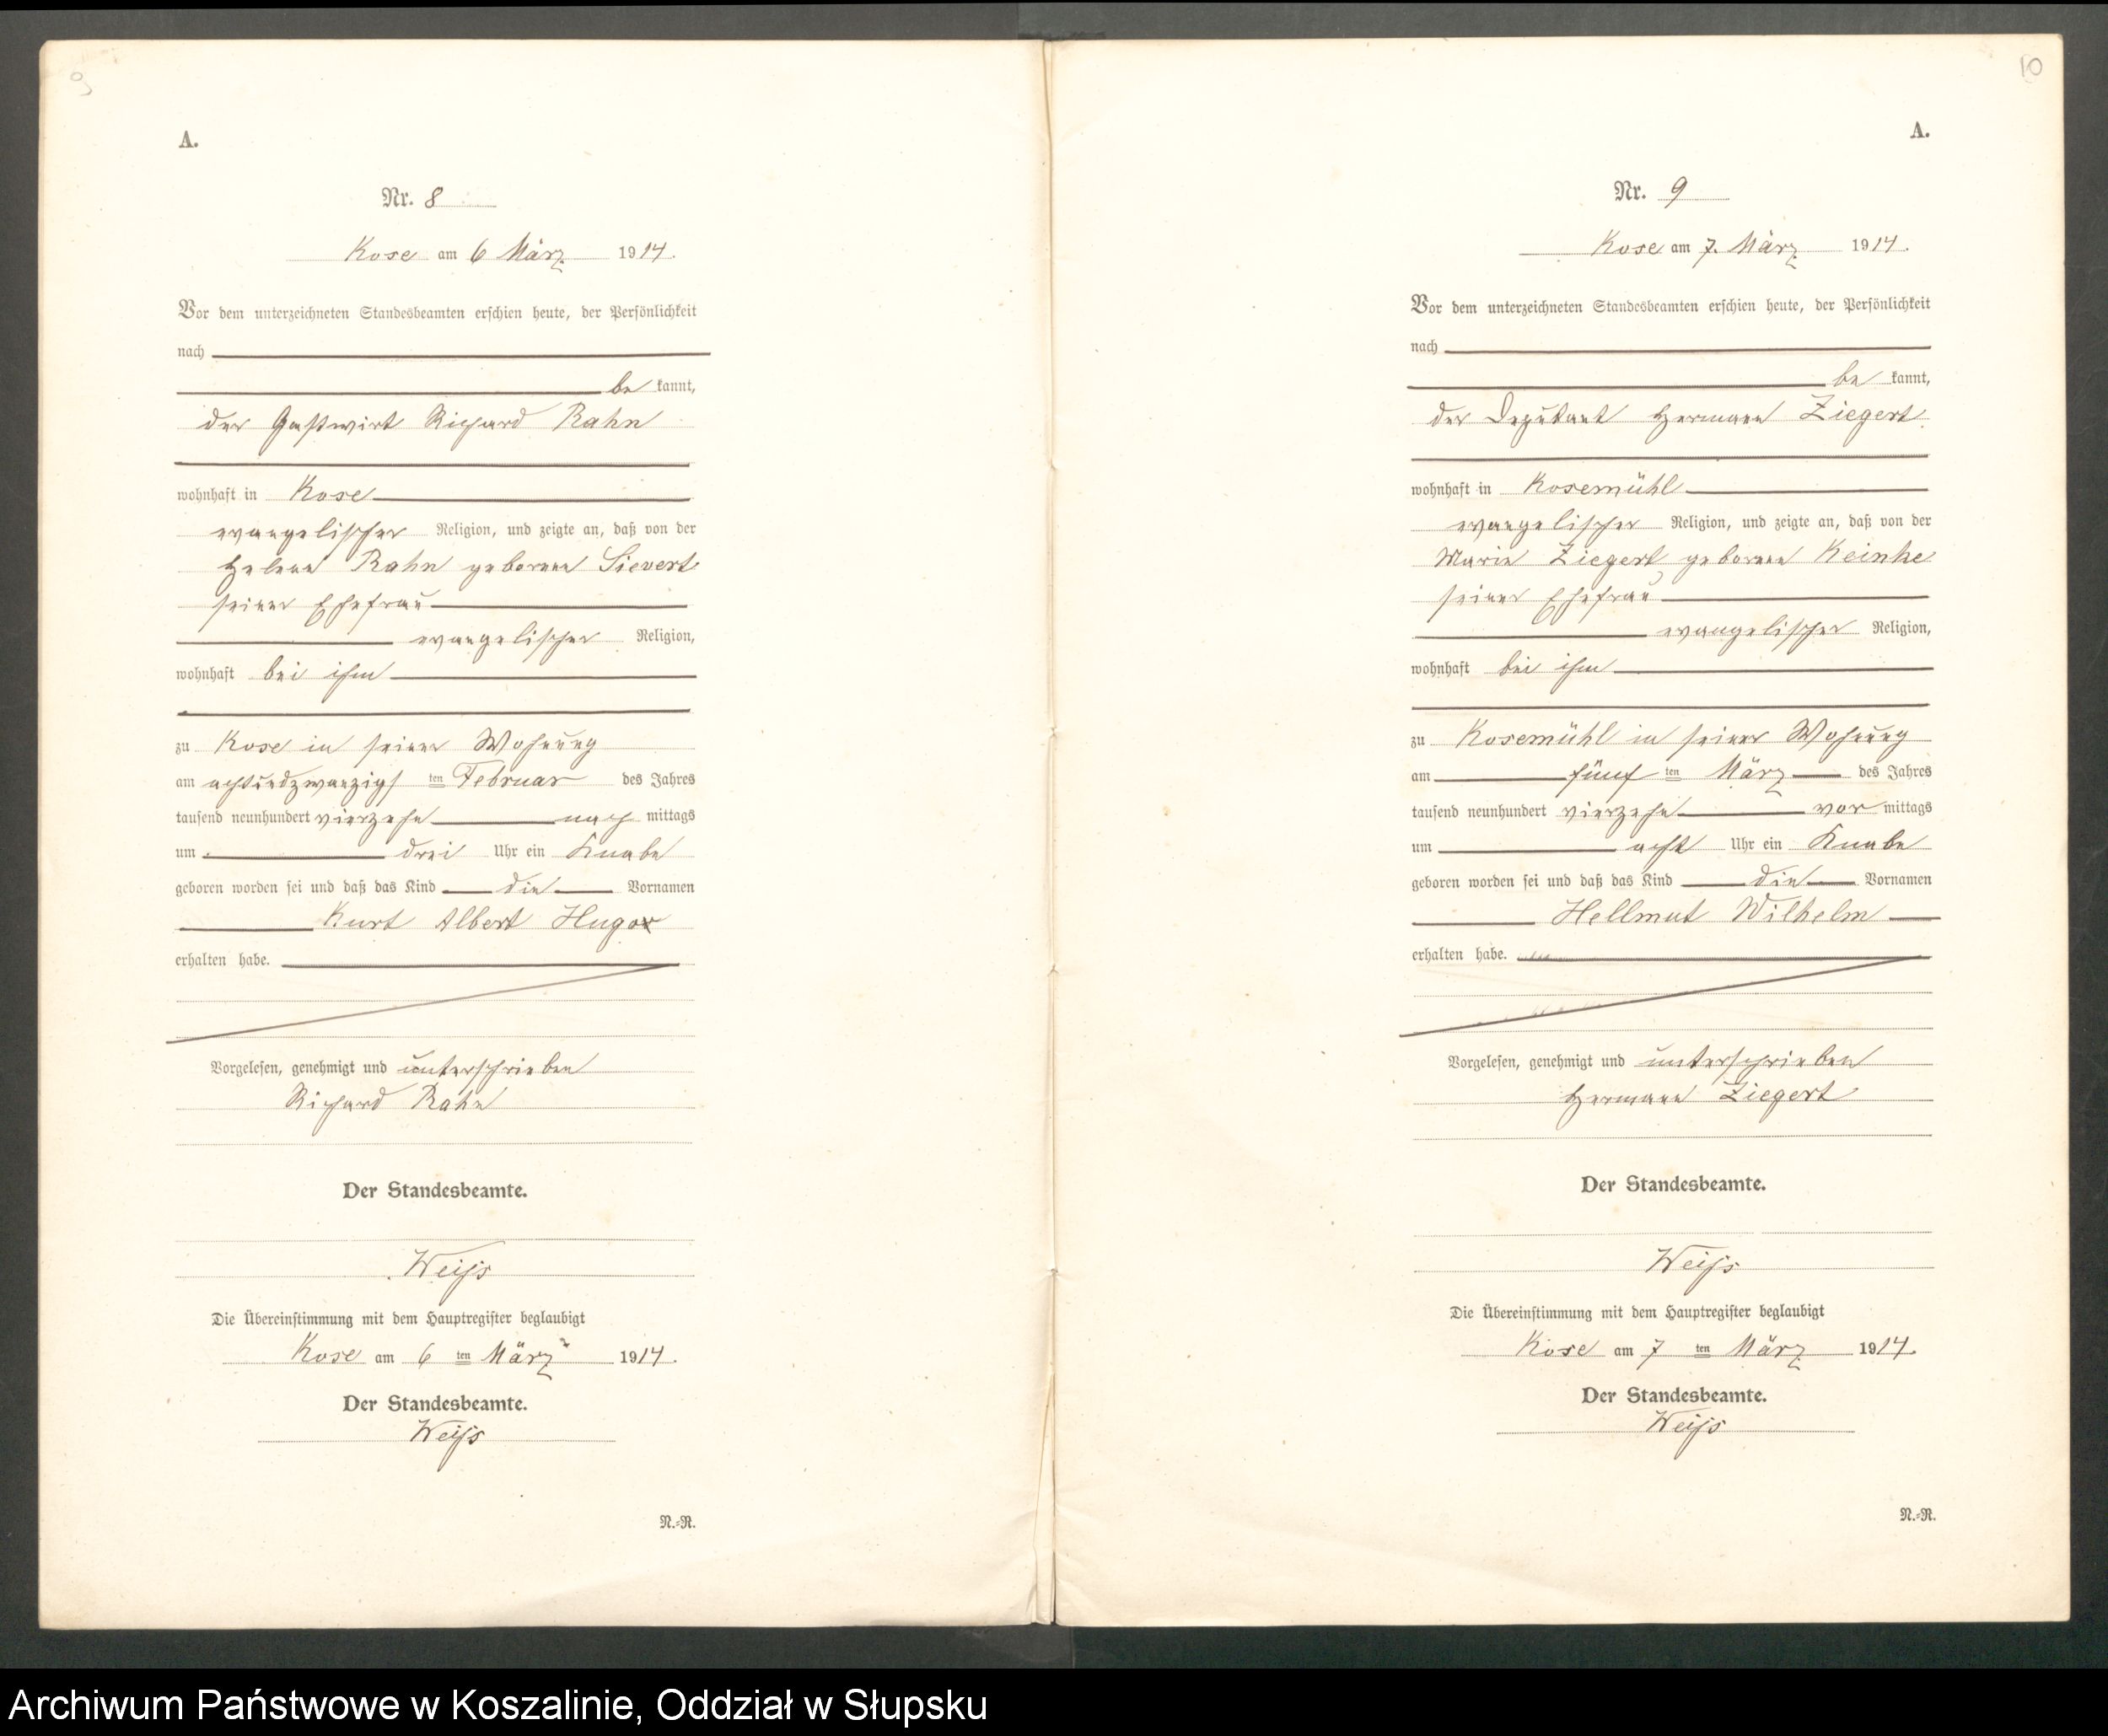 9
A.
Nr. 8
Kose am 6 März 1914.
Vor dem unterzeichneten Standesbeamten erschien heute, der Persönlichkeit
nach
be kannt,
der Gastwirt Richard Rahn
wohnhaft in Kose
evangelischer Religion, und zeigte an, daß von der
Helene Rahn geborene Sievert
seiner Ehefrau
evangelischer Religion,
wohnhaft bei ihm
zu Kose in seiner Wohnung
am achtundzwanzigs ten Februar des Jahres
tausend neunhundert vierzehn nach mittags
um drei Uhr ein Knabe
geboren worden sei und daß das Kind die Vornamen
Kurt Albert Hugo
erhalten habe.
Vorgelesen, genehmigt und unterschrieben
Richard Rahn
Der Standesbeamte.
Weiss
Die Übereinstimmung mit dem Hauptregister beglaubigt
Kose am 6 ten März 1914.
Der Standesbeamte.
Weiss
N.=R.
10
A.
Nr. 9
Kose am 7. März 1914.
Vor dem unterzeichneten Standesbeamten erschien heute, der Persönlichkeit
nach
be kannt,
der Deputant Hermann Ziegert
wohnhaft in Kosemühl
evangelischer Religion, und zeigte an, daß von der
Marie Ziegert geborene Reinke
seiner Ehefrau
evangelischer Religion,
wohnhaft bei ihm
zu Kosemühl in seiner Wohnung
am fünf ten März des Jahres
tausend neunhundert vierzehn vor mittags
um acht Uhr ein Knabe
geboren worden sei und daß das Kind die Vornamen
Hellmut Wilhelm
erhalten habe.
Vorgelesen, genehmigt und unterschrieben
Hermann Ziegert
Der Standesbeamte.
Weiss
Die Übereinstimmung mit dem Hauptregister beglaubigt
Kose am 7 ten März 1914.
Der Standesbeamte.
Weiss
N.=R.
Archiwum Państwowe w Koszalinie, Oddział w Słupsku